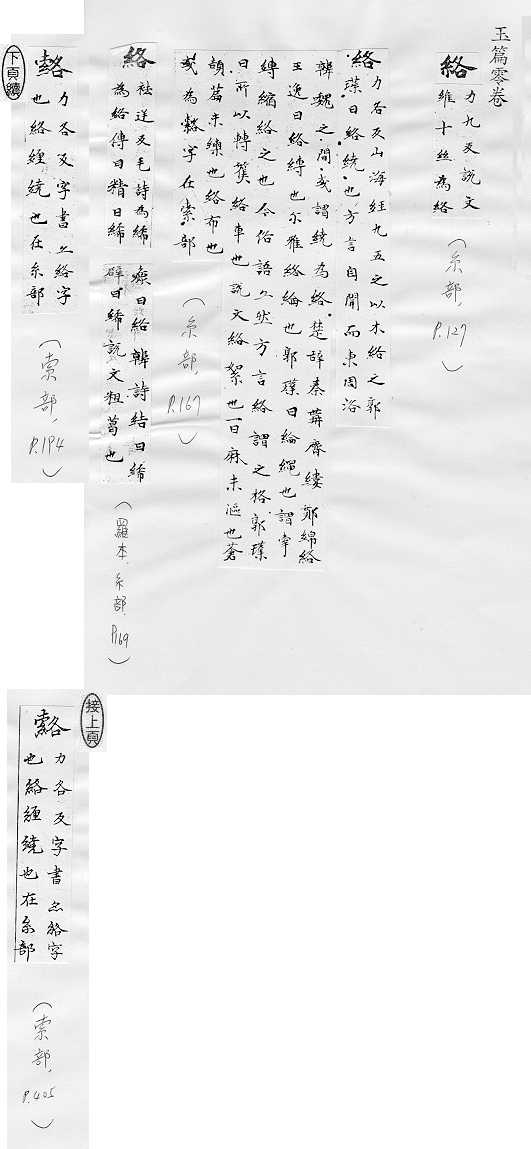 玉篇零卷
絡
力九反說文
緯十絲為絡
（糸部，P.127）
絡
力各反山海經九五之以木絡之郭
璞曰絡繞也方言自關而東周洛
韓魏之間或謂繞為絡楚辭秦篝齊縷鄭綿絡
王逸曰絡縛也尒雅絡綸也郭璞曰綸繩也謂牢
縛縮絡之也今俗語亦然方言絡謂之格郭璞
曰所以轉篗絡車也說文絡絮也一曰麻未漚也蒼
頡篇未練也絡布也
或為䌴字在索部
（糸部，P.167）
絡
祛逆反毛詩為絺
為絡傳曰精曰絺
麁曰絡韓詩結曰絺
辟曰綌說文粗葛也
（羅本，糸部，P.169）
䌴
力各反字書亦絡字
也絡纏繞也在糸部
（索部，P.194）
下頁續
接上頁
䌴
力各反字書亦絡字
也絡纏繞也在糸部
（索部，P.405）